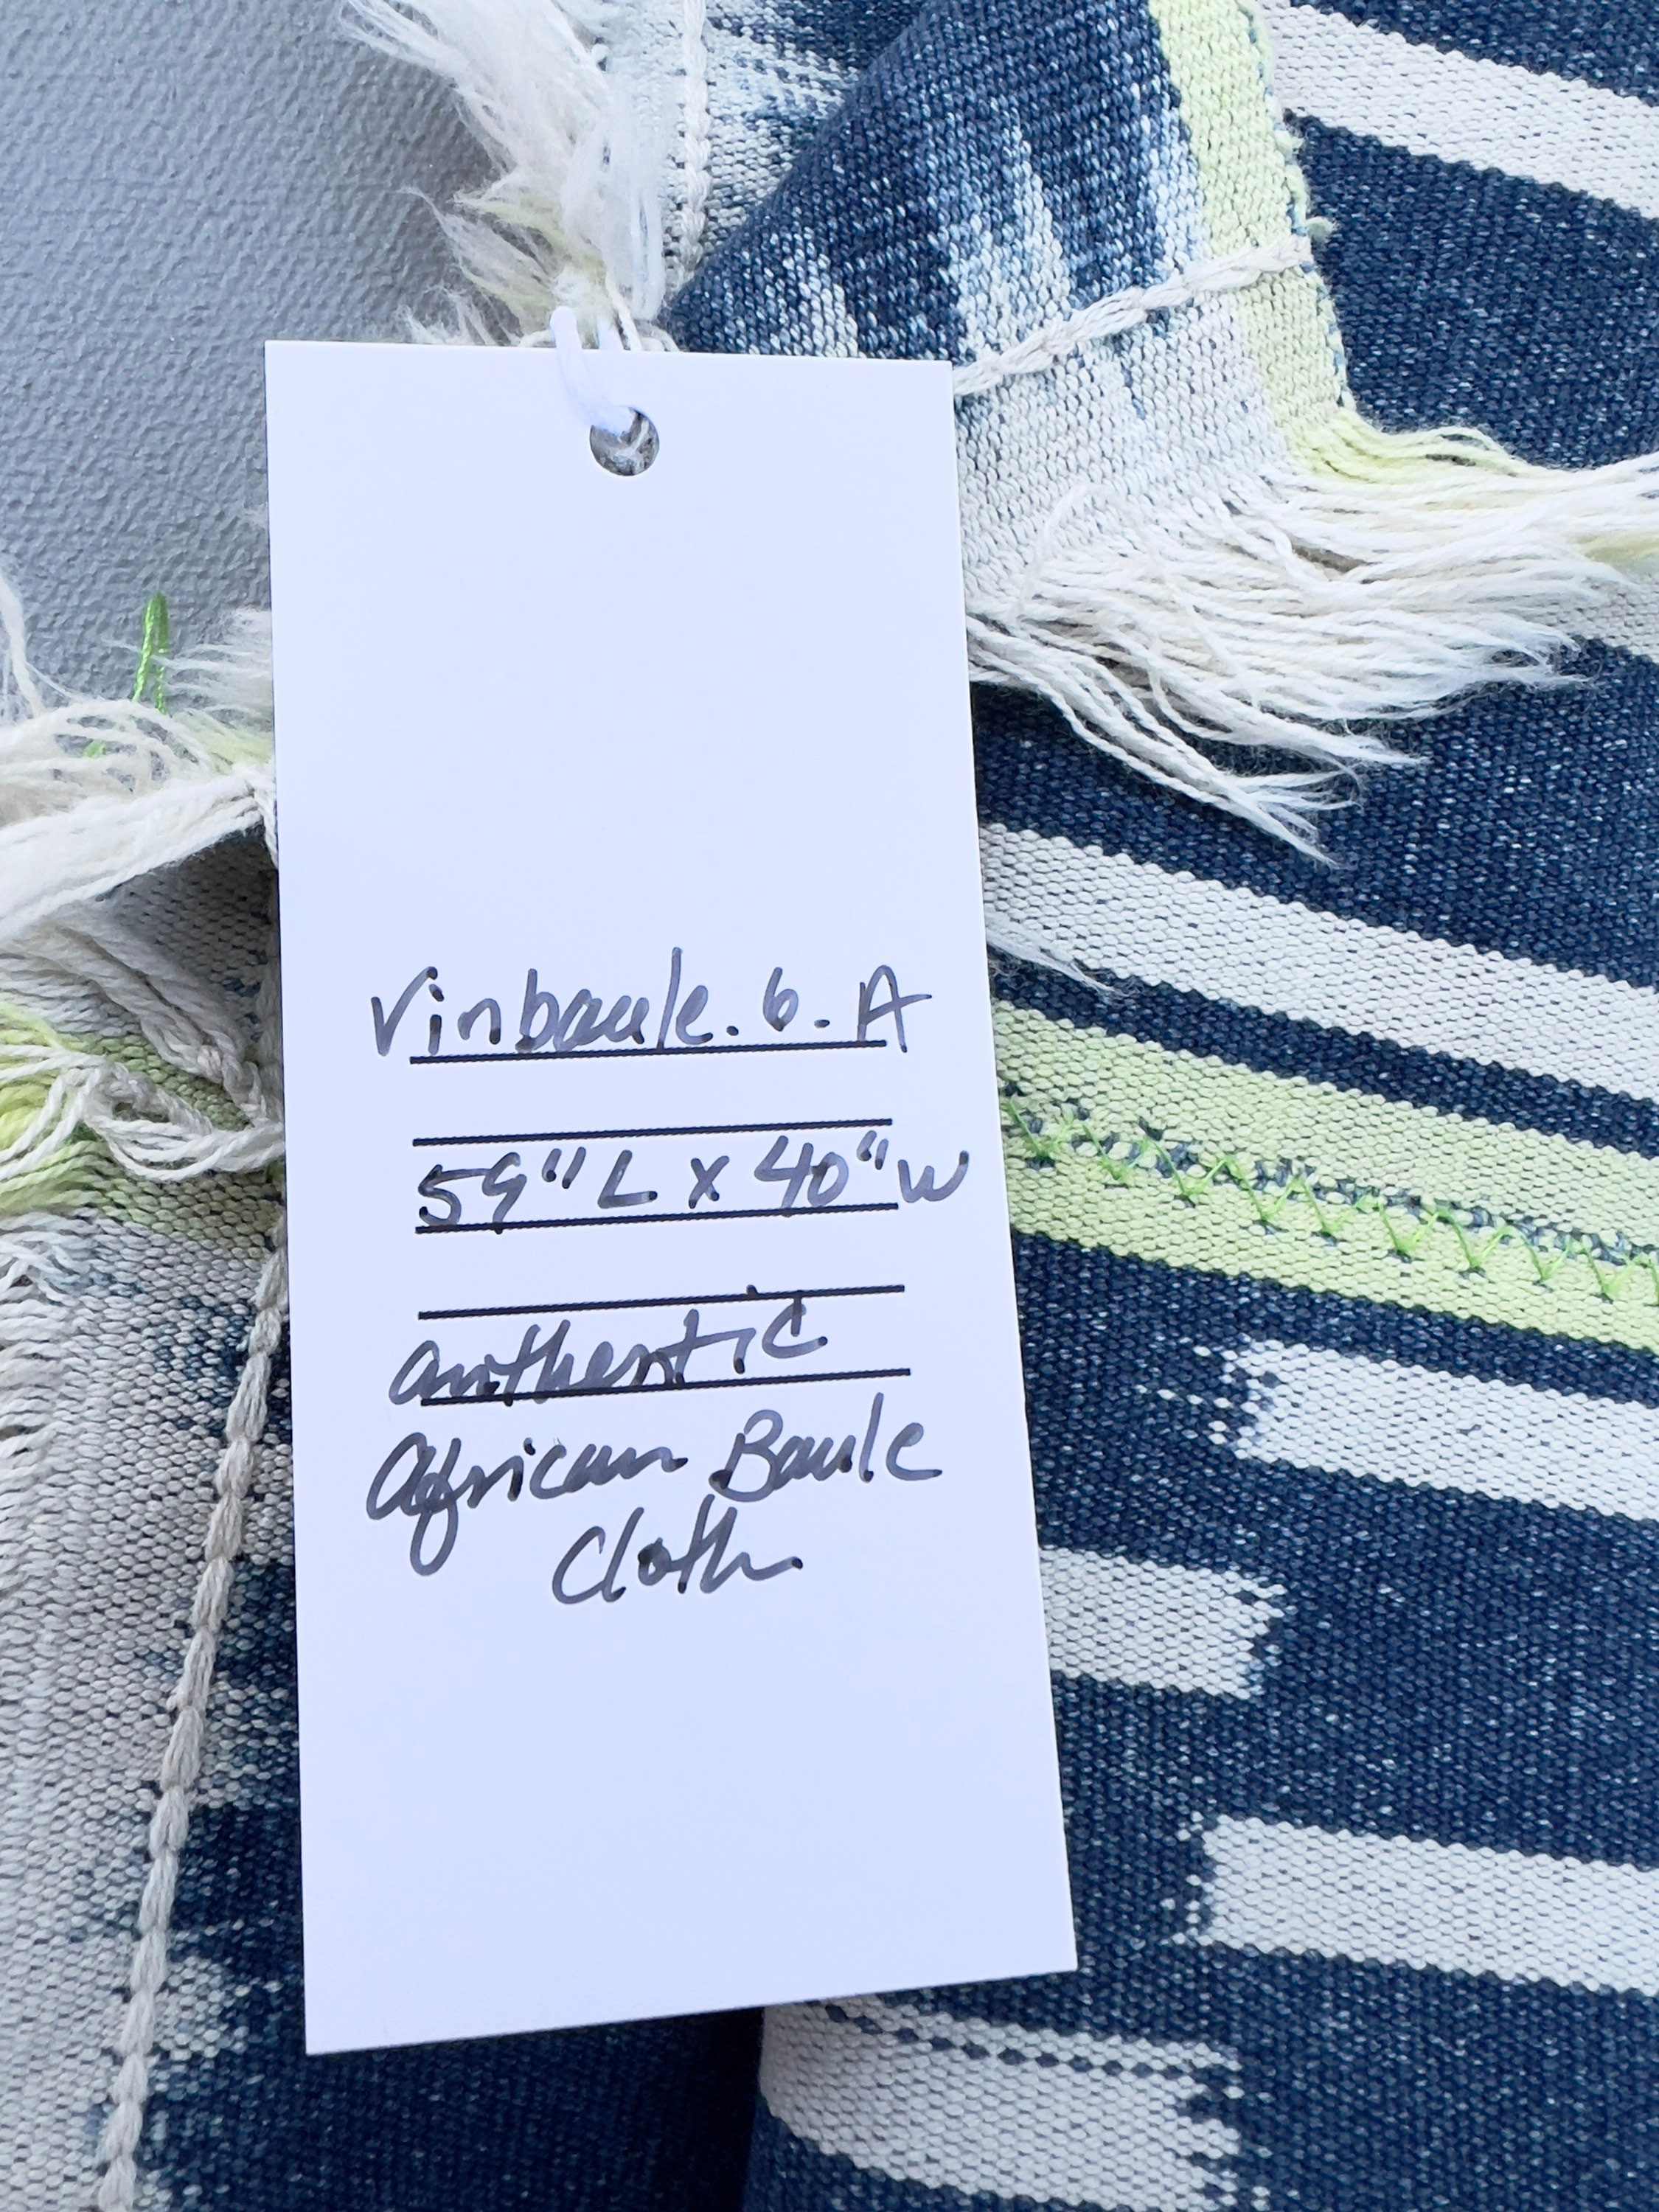 Vinbaule. 6. A
59" L x 40" W
authentic
African Baule
Cloth